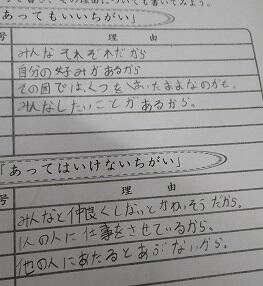 、その理由についても書いてみよう。
「あってもいいちがい」
号 理由
みんなそれぞれだから
自分の好みがあるから
その国では、くつをはいたままなのかも。
みんなしたいことがあるから。
「あってはいけないちがい」
号 理由
みんなと仲良くしないとかわいそうだから。
1人の人に仕事をさせているから。
他の人にあたるとあぶないから。